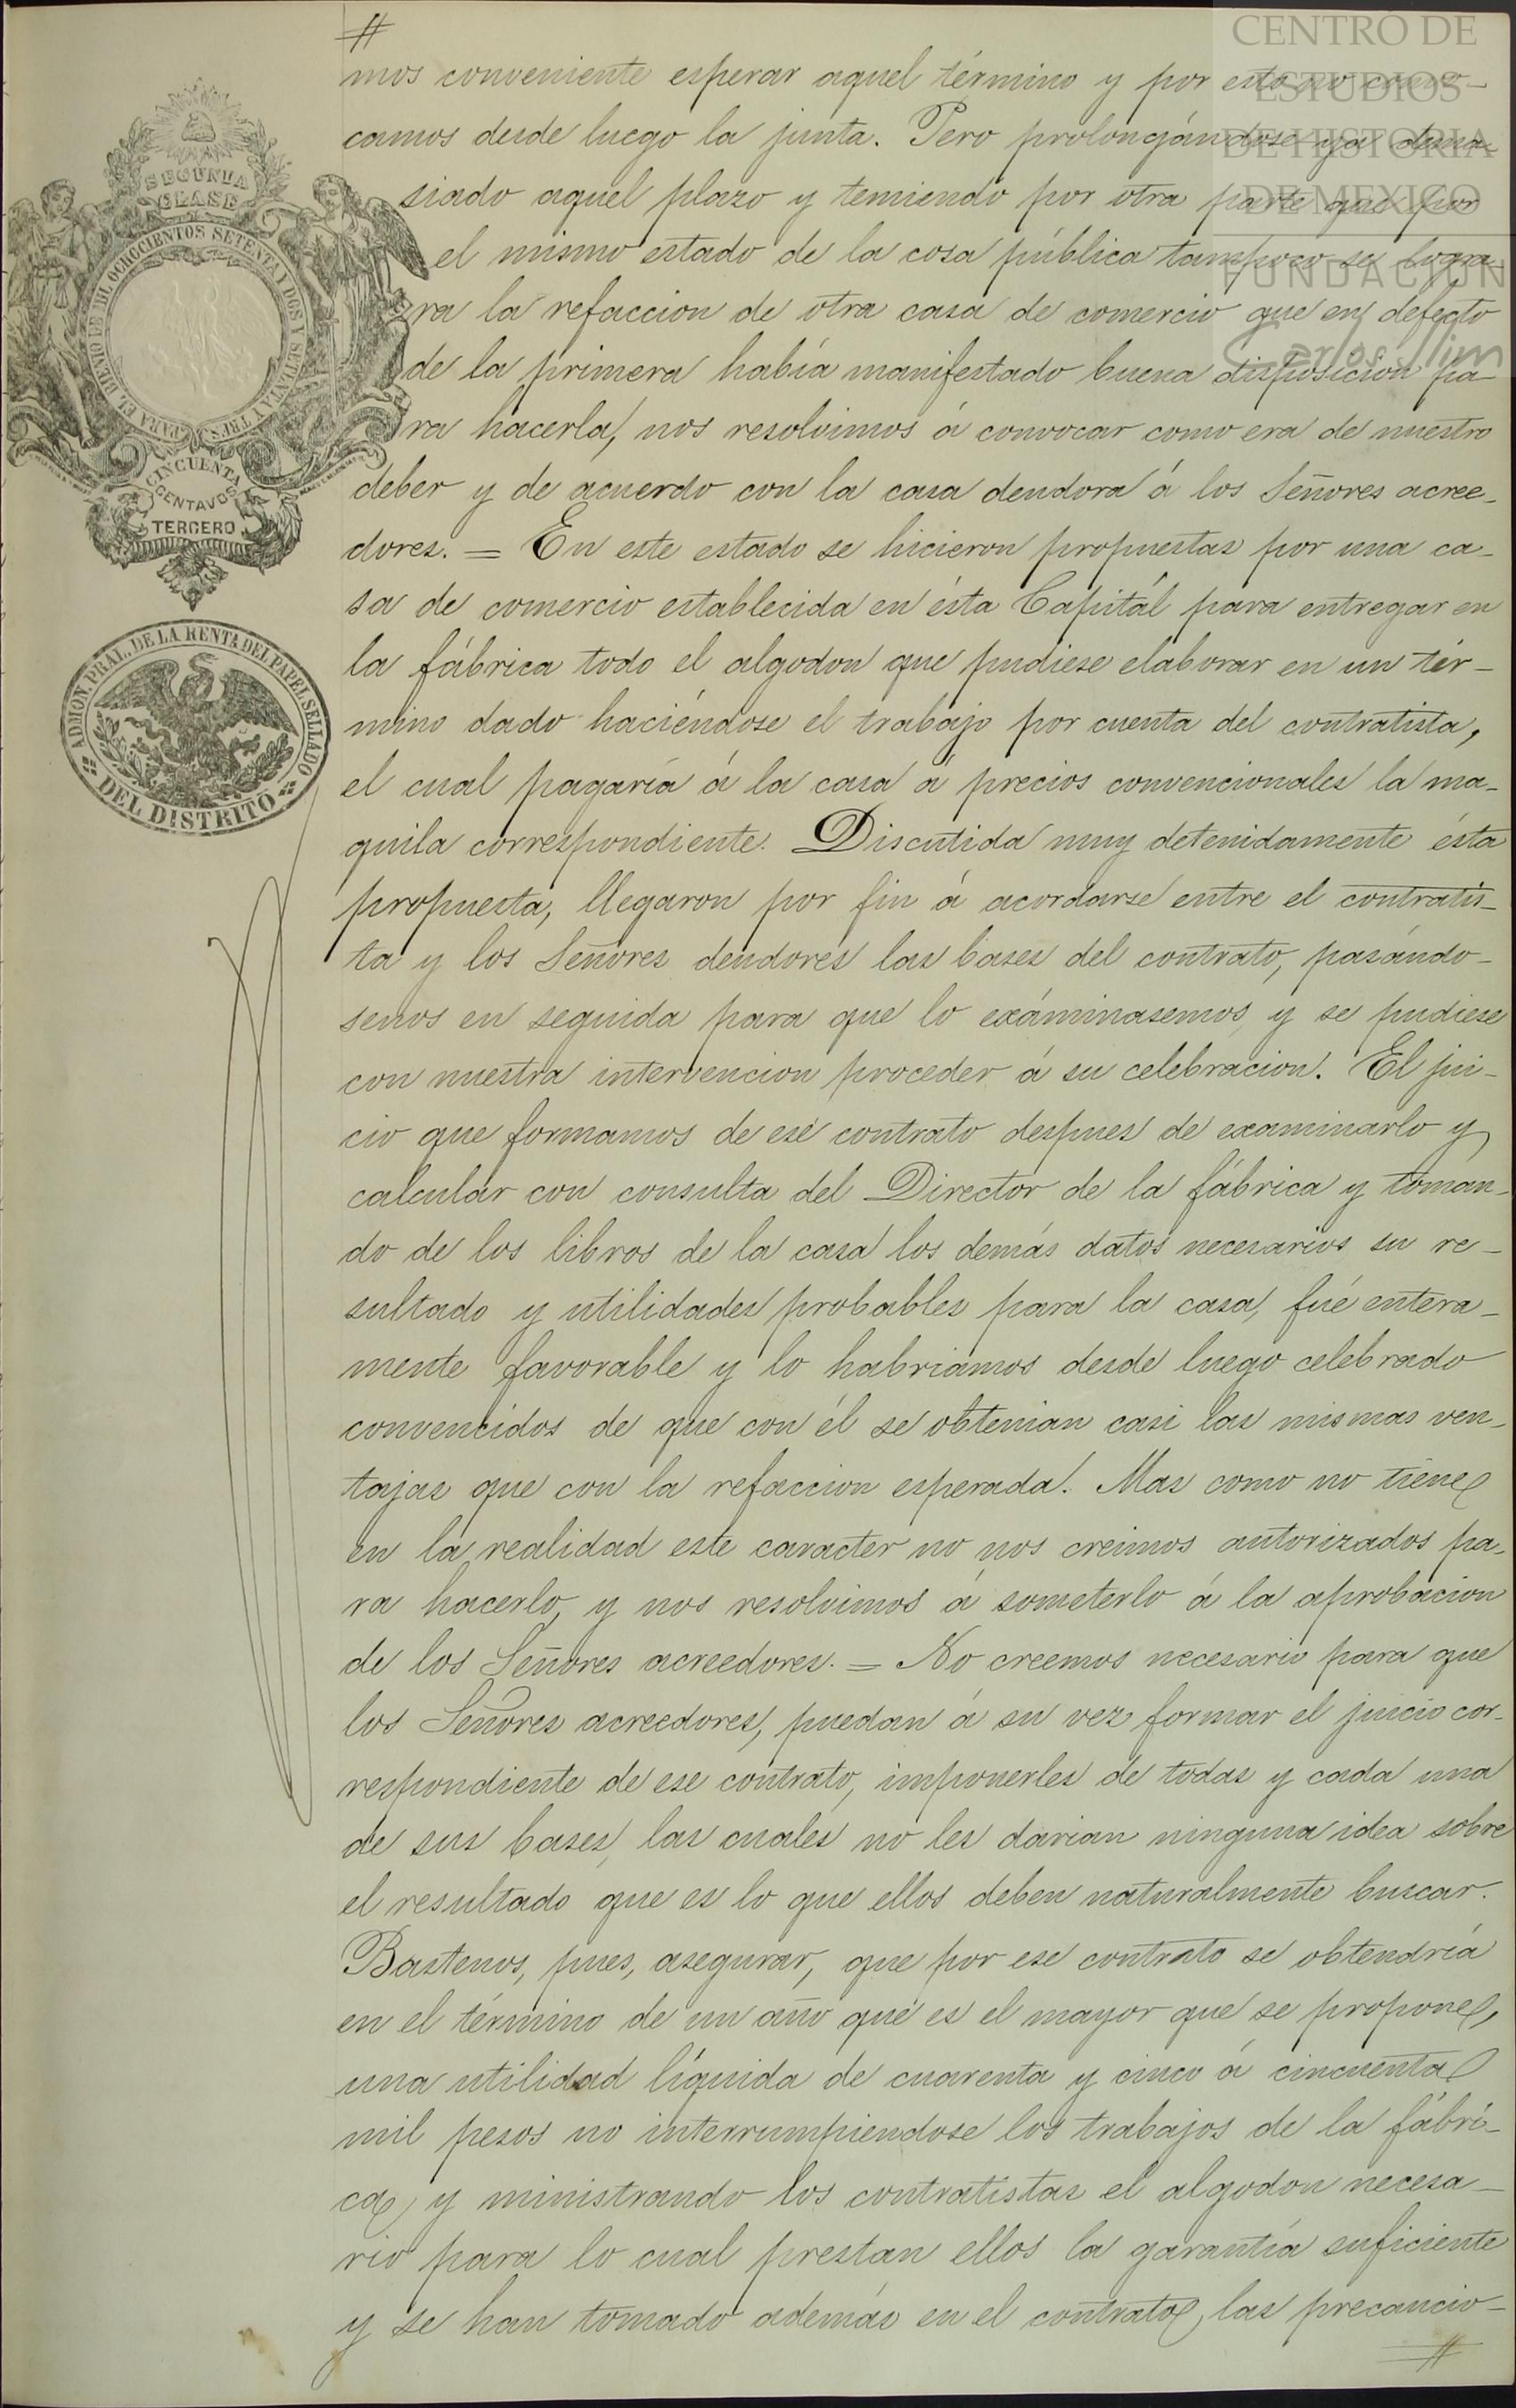 CENTRO DE
ESTUDIOS
DE HISTORIA
DE MEXICO
FUNDACION
Carlos Slim
SEGUNDA
CLASE
PARA EL BIENIO DE MIL OCHOCIENTOS SETENTA Y DOS Y SETENTA Y TRES
CINCUENTA
CENTAVOS
TERCERO
ADMON. PRAL. DE LA RENTA DEL PAPEL SELLADO
DEL DISTRITO
#
mos conveniente esperar aquel término y por esto no convo-
camos desde luego la junta. Pero prolongándose ya dema-
siado aquel plazo y temiendo por otra parte que por
el mismo estado de la cosa pública tampoco se logra-
ra la refaccion de otra casa de comercio que en defecto
de la primera había manifestado buena disposicion pa-
ra hacerla, nos resolvimos á convocar como era de nuestro
deber y de acuerdo con la casa deudora á los Señores acree-
dores. = En este estado se hicieron propuestas por una ca-
sa de comercio establecida en ésta Capitál para entregar en
la fábrica todo el algodon que pudiese elaborar en un tér-
mino dado haciéndose el trabajo por cuenta del contratista,
el cual pagaría á la casa á precios convencionales la ma-
quila correspondiente. Discutida muy detenidamente ésta
propuesta, llegaron por fin á acordarse entre el contratis-
ta y los Señores deudores las bases del contrato, pasándo-
senos en seguida para que lo exáminasemos y se pudiese
con nuestra intervencion proceder á su celebracion. El jui-
cio que formamos de ese contrato despues de examinarlo y
calcular con consulta del Director de la fábrica y toman-
do de los libros de la casa los demás datos necesarios su re-
sultado y utilidades probables para la casa, fué entera-
mente favorable y lo habriamos desde luego celebrado
convencidos de que con él se obtenian casi las mismas ven-
tajas que con la refaccion esperada. Mas como no tiene
en la realidad este caracter no nos creimos autorizados pa-
ra hacerlo, y nos resolvimos á someterlo á la aprobacion
de los Señores acreedores. = No creemos necesario para que
los Señores acreedores, puedan á su vez formar el juicio cor-
respondiente de ese contrato, imponerles de todas y cada una
de sus bases, las cuales no les darian ninguna idea sobre
el resultado que es lo que ellos deben naturalmente buscar.
Bastenos, pues, asegurar, que por ese contrato se obtendría
en el término de un año que es el mayor que se propone,
una utilidad líquida de cuarenta y cinco á cincuenta
mil pesos no interrumpiendose los trabajos de la fábri-
ca, y ministrando los contratistas el algodon necesa-
rio para lo cual prestan ellos la garantía suficiente
y se han tomado además en el contrato, las precaucio-
#